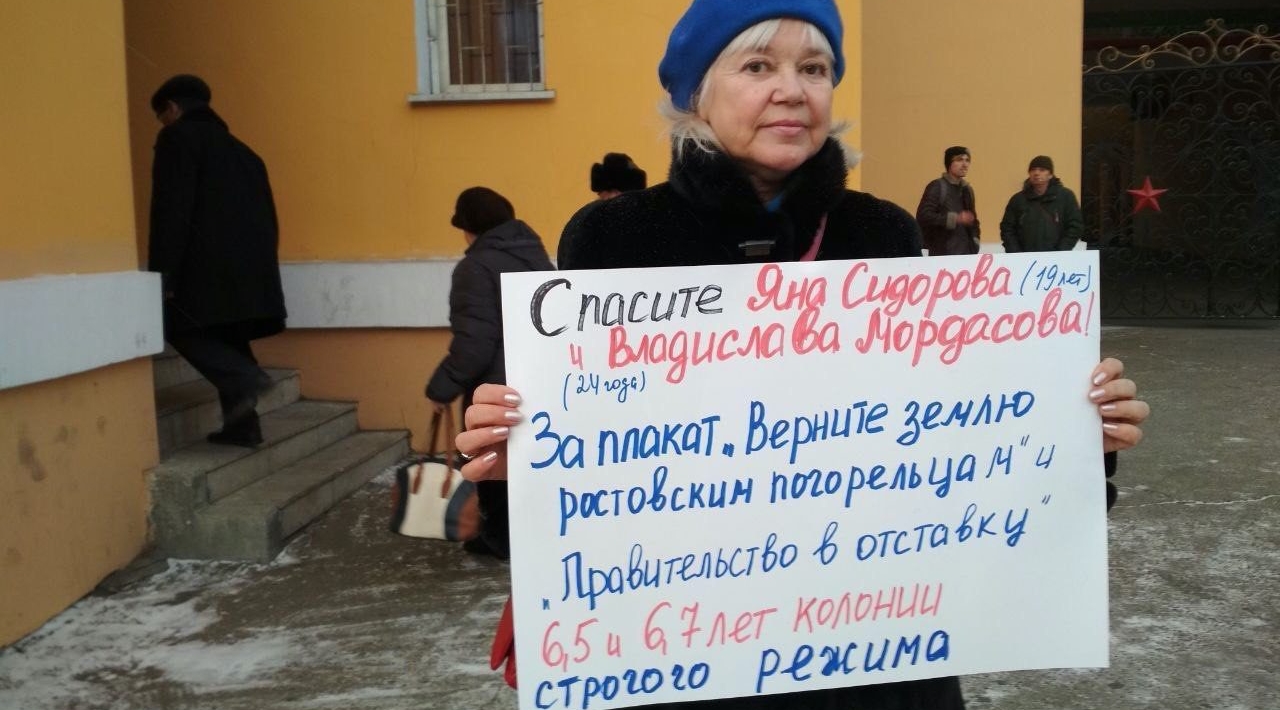 Спасите Яна Сидорова (19 лет)
и Владислава Мордасова!
(24 года)
За плакат „Верните землю
ростовским погорельцам" и
„Правительство в отставку"
6,5 и 6,7 лет колонии
строгого режима